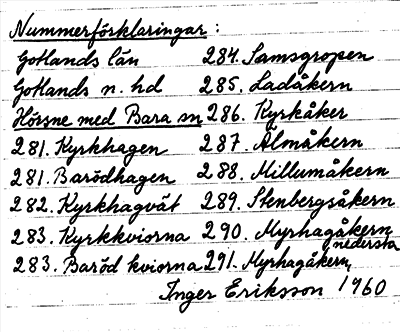 Nummerförklaringar:
Gotlands län 284. Samsgropen
Gotlands n. hd 285. Ladåkern
Hörsne med Bara sn 286. Kyrkåker
281. Kyrkhagen 287. Älmåkern
281. Barödhagen 288. Millumåkern
282. Kyrkhagvät 289. Stenbergsåkern
283. Kyrkkviorna 290. Myrhagåkern nedersta
283. Baröd kviorna 291. Myrhagåkern,
Inger Eriksson 1960